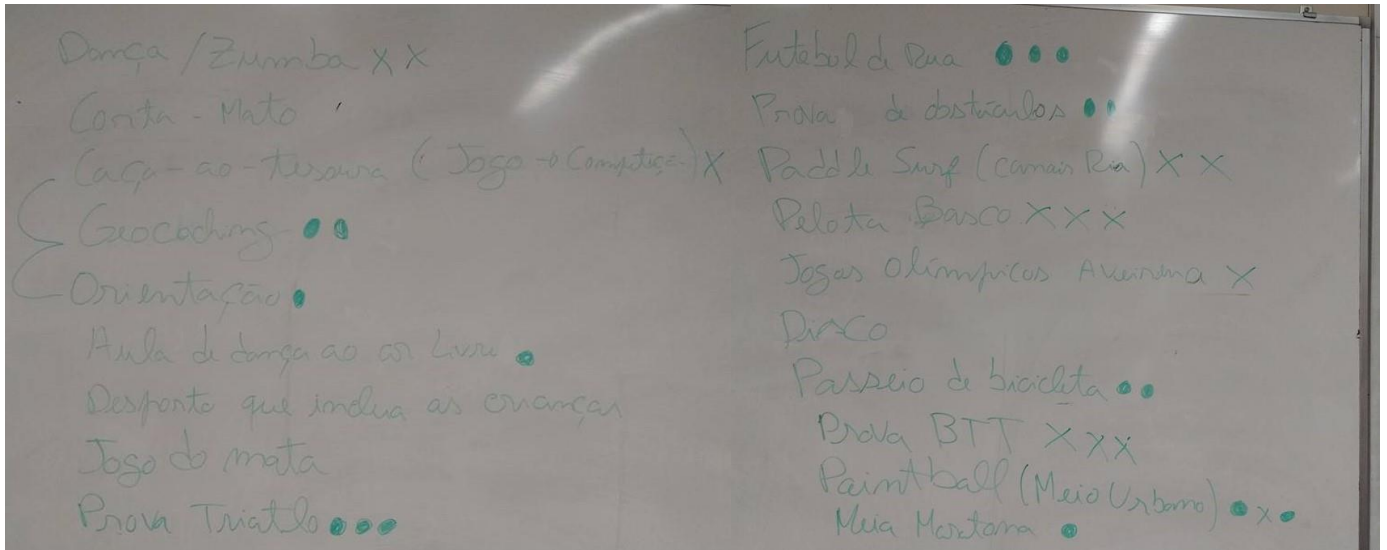 Dança / Zumba X X
Corta - Mato
Caça - ao - tesoura (Jogo → Competiçã) X
Geocaching
Orientação
Aula de dança ao ar Livre
Desporto que inclua as crianças
Jogo do mata
Prova Triatlo
Futebol de Rua
Prova de obstáculos
Paddle Surf (canais Ria) X X
Pelota Basco X X X
Jogos Olímpicos Aveirense X
Disco
Passeio de bicicleta
Prova BTT X X X
Paintball (Meio Urbano) X
Meia Maratona